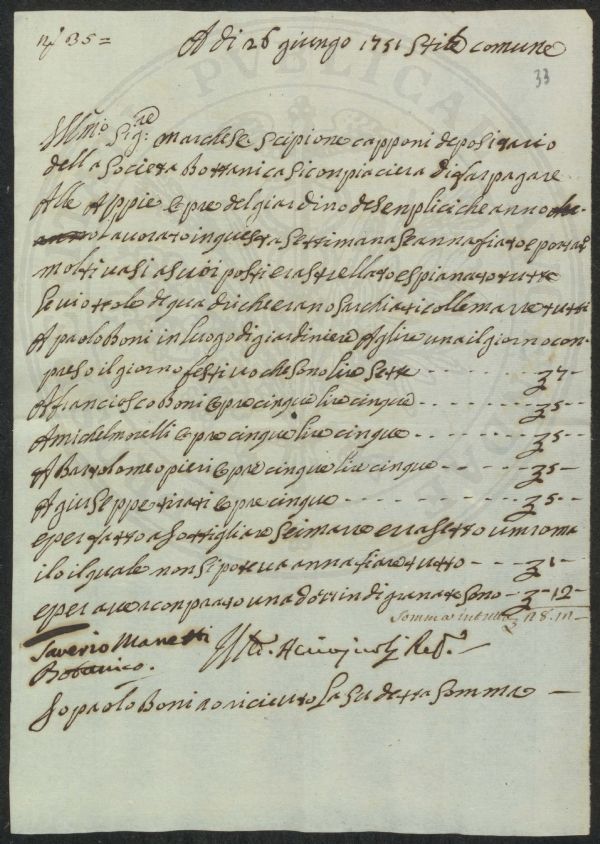 N° 35 =
A di 26 giungo 1751 Stile comune
33
Ill:mo Sig:re Marchese Scipione capponi depositario
della Societa Bottanica Si conpiacera di far pagare
Alle Appie Opre del giardino de Senplici che anno
lavorato in questa Settimana Se anna fiato e portati
molti vasi a suoi posti e rastrellato e spianato tutte
le viottole di qua di che erano Sarchiati colle marre tutti
A paolo Boni in luogo di giardiniere A lire una il giorno con-
preso il giorno festivo che sono lire Sette - - - - - - £ 7 -
A franciosco Boni Opre cinque lire cinque - - - - - - £ 5 -
A michel morelli Opre cinque lire cinque - - - - - - £ 5 -
A Bartolomeo pieri Opre cinque lire cinque - - - - - £ 5 -
A giuseppe tirati Opre cinque - - - - - - - - - £ 5 -
e per fatto a Sottigliare Sei marre e rasetto un roma
iolo il quale non Si poteva anna fiare tutto - - - - £ 1 -
e per aver conprato una dozzin di granate sono - £ - 12 -
Somma in tutto £ 28.12 -
Saverio Manetti
Botanico.
Io paolo Boni o riceuto La Su detta Somma -